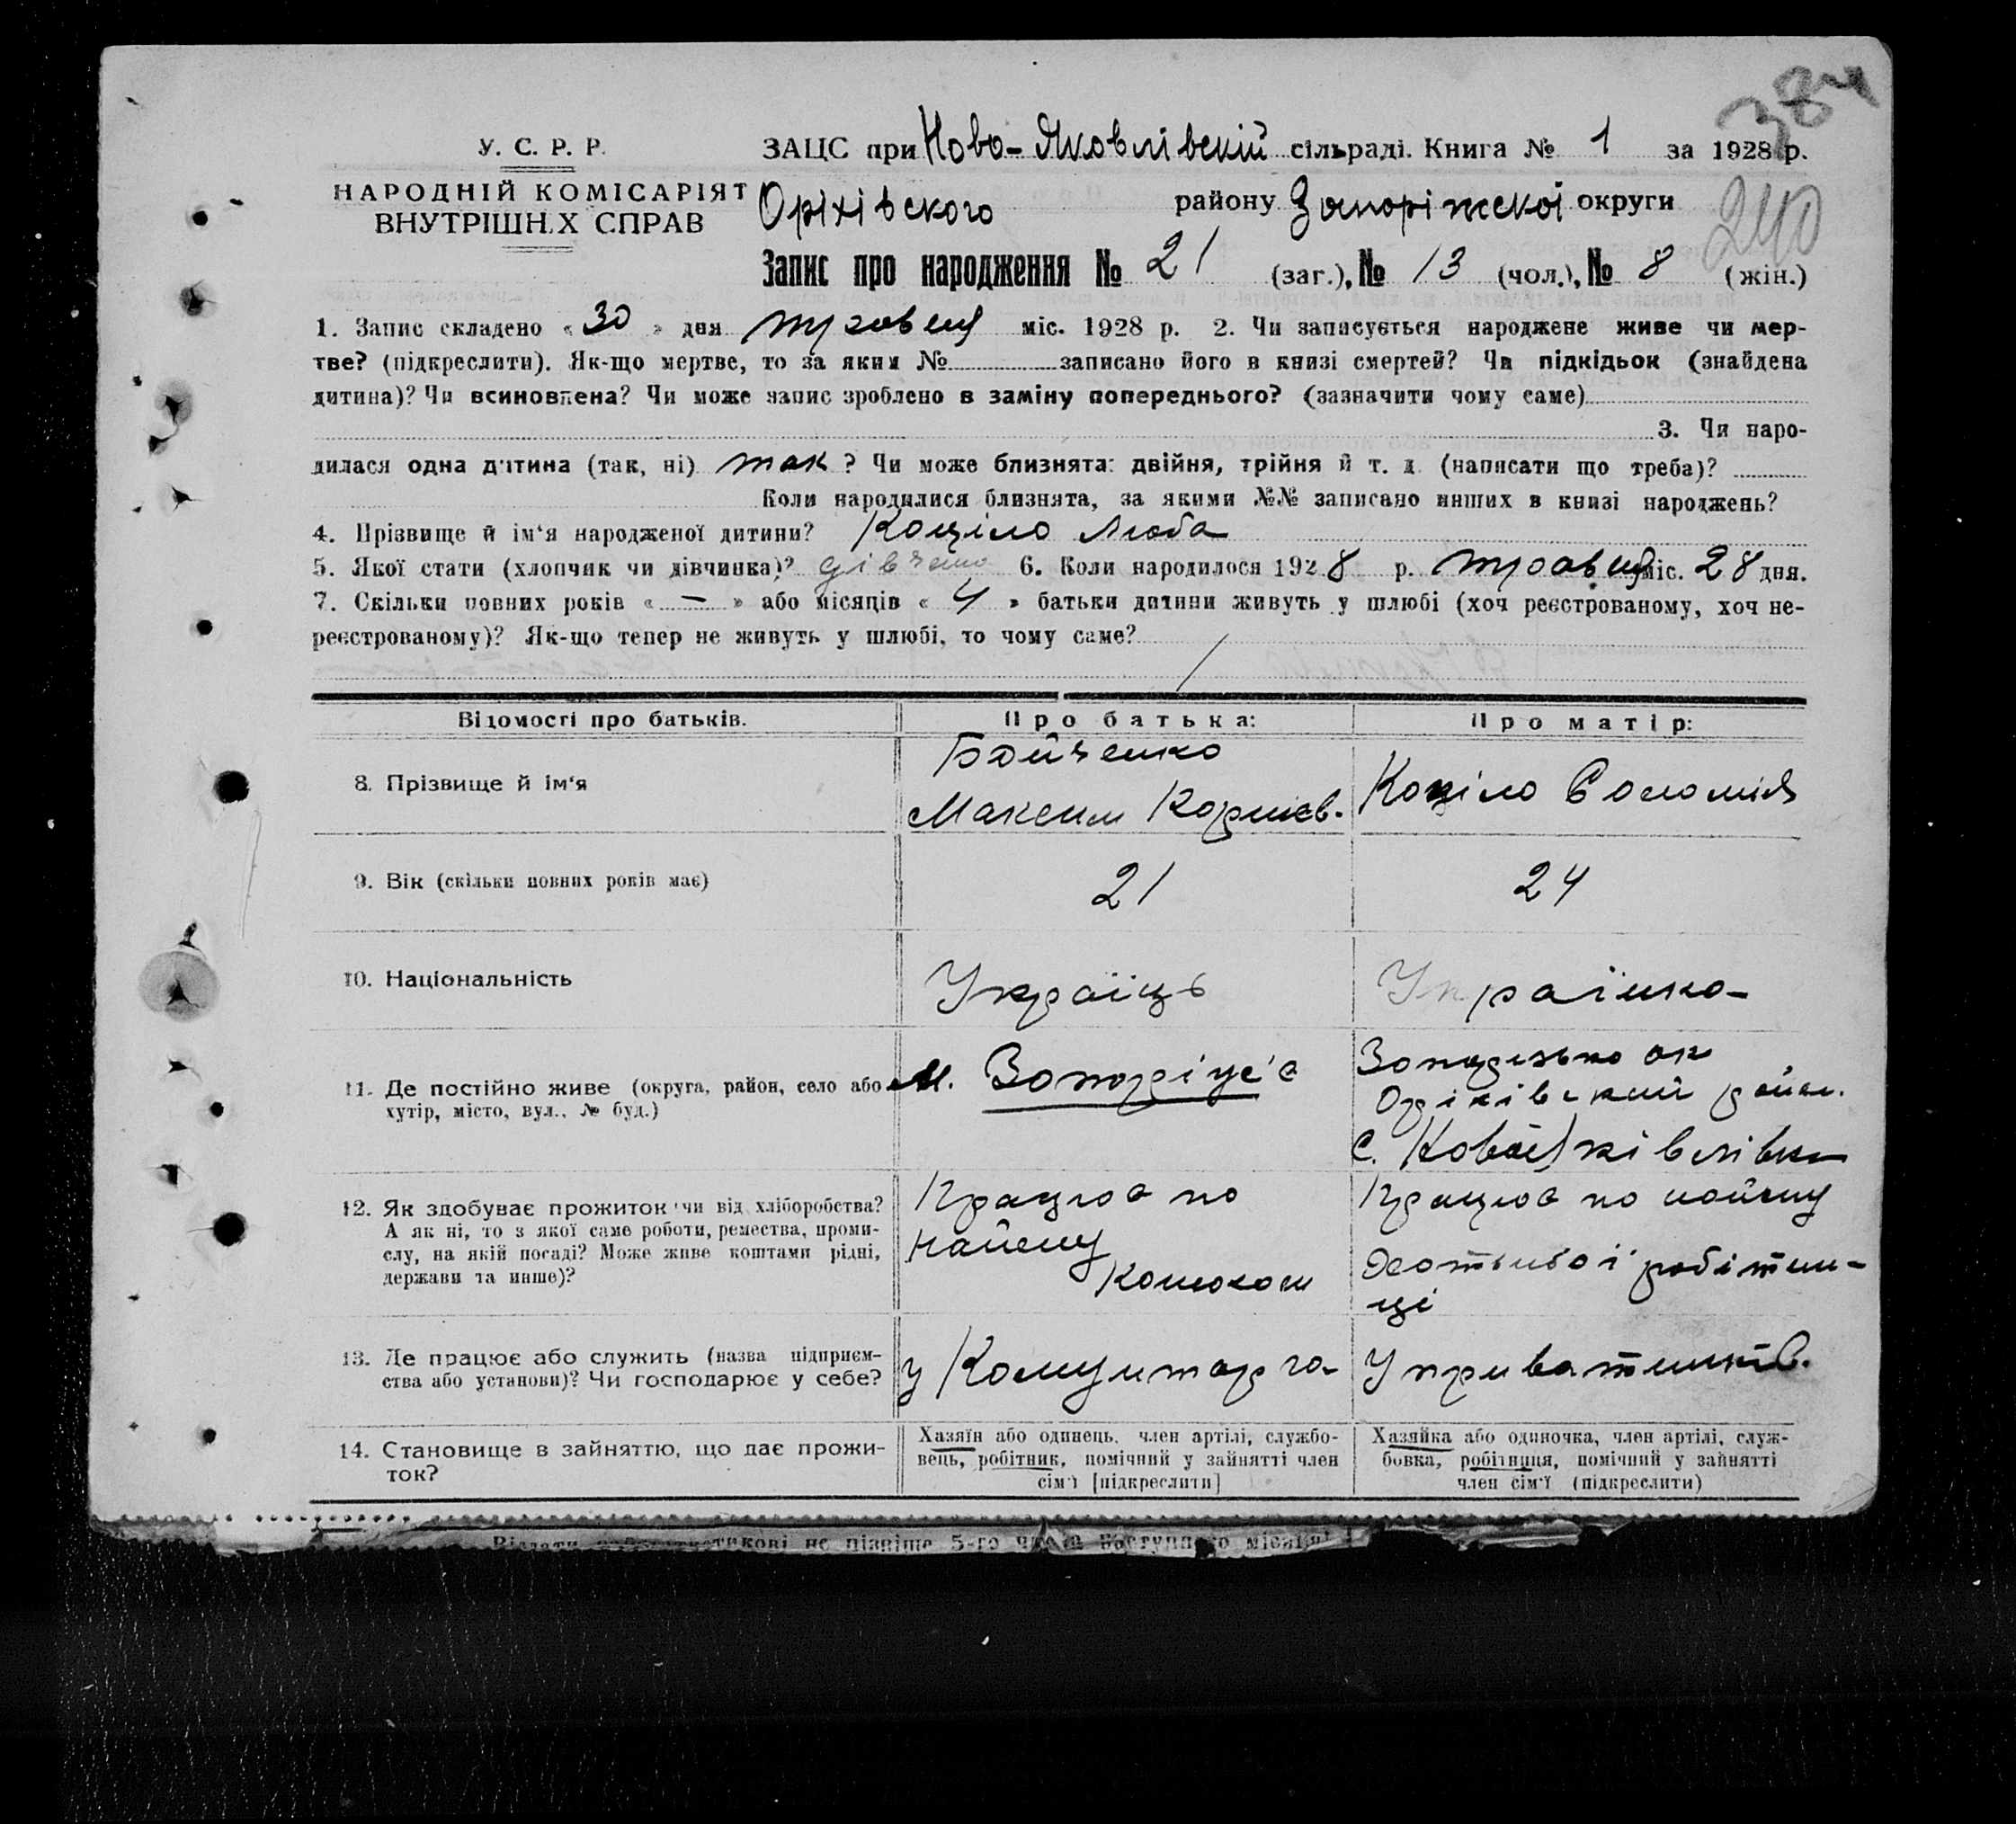 384
У. С. Р. Р.
НАРОДНІЙ КОМІСАРІЯТ
ВНУТРІШНІХ СПРАВ
ЗАЦС при Ново-Яковлівскій сільраді. Книга № 1 за 1928 р.
Оріхівского району Запоріжскої округи
240
Запис про народження № 21 (заг.), № 13 (чол.), № 8 (жін.)
1. Запис складено « 30 » дня травня міс. 1928 р. 2. Чи записується народжене живе чи мер-
тве? (підкреслити). Як-що мертве, то за яким № записано його в книзі смертей? Чи підкідьок (знайдена
дитина)? Чи всиновлена? Чи може запис зроблено в заміну попереднього? (зазначити чому саме)
3. Чи наро-
дилася одна дитина (так, ні) так ? Чи може близнята: двійня, трійня й т. д. (написати що треба)?
Коли народилися близнята, за якими №№ записано инших в книзі народжень?
4. Прізвище й ім‘я народженої дитини? Коціло Люба
5. Якої стати (хлопчик чи дівчинка)? 6. Коли народилося 1928 р. травня міс. 28 дня.
7. Скільки повних років « — » або місяців « 4 » батьки дитини живуть у шлюбі (хоч реєстрованому, хоч не-
реєстрованому)? Як-що тепер не живуть у шлюбі, то чому саме?
Відомості про батьків. Про батька: Про матір:
8. Прізвище й ім‘я Бойченко Максим Корнієв. Коціло Соломія
9. Вік (скільки повних років має) 21 24
10. Національність Украіїць Українка
11. Де постійно живе (округа, район, село або
хутір, місто, вул., № буд.)
м. Запоріж'є
Оріхівський район.
с. Новояківлівка
12. Як здобуває прожиток чи від хліборобства?
А як ні, то з якої саме роботи, ремества, проми-
слу, на якій посаді? Може живе коштами рідні,
держави та инше)?
Працює по
найому
Конюхом
Працює по найому
робітни-
ці
13. Де працює або служить (назва підприєм-
ства або установи)? Чи господарює у себе?
у Комунторга
У приватників.
14. Становище в зайняттю, що дає прожи-
ток?
Хазяїн або одинець, член артілі, службо-
вець, робітник, помічний у зайнятті член
сім‘ї [підкреслити]
Хазяйка або одиночка, член артілі, служ-
бовка, робітниця, помічний у зайнятті
член сім‘ї (підкреслити)
не пізніше 5-го